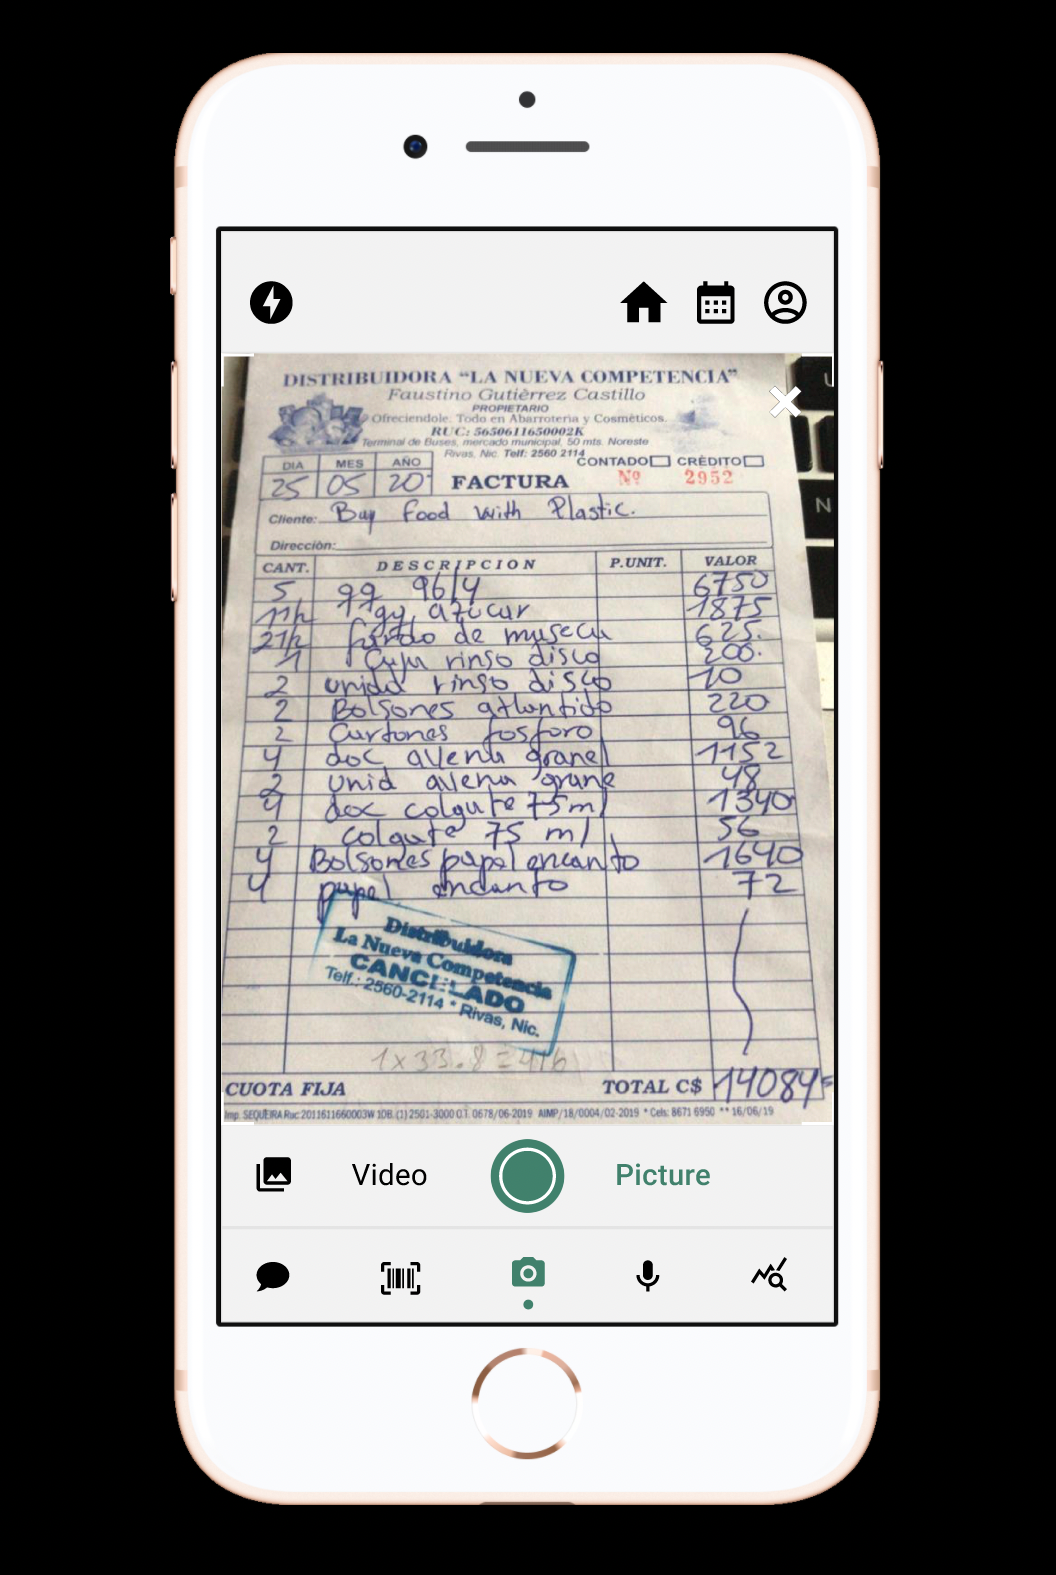 DISTRIBUIDORA “LA NUEVA COMPETENCIA”
Faustino Gutièrrez Castillo
PROPIETARIO
Ofreciendole: Todo en Abarroteria y Cosmèticos.
RUC: 5650611650002K
Terminal de Buses, mercado municipal, 50 mts. Noreste
Rivas, Nic. Telf: 2560 2114
CONTADO CRÈDITO
DIA MES AÑO
25 05 20
FACTURA Nº 2952
Cliente: Buy Food with Plastic.
Direcciòn:
CANT. DESCRIPCION P.UNIT. VALOR
5 qq 96/4 6750
azucar 1875
de 625.
1 Caja rinso disco 200.
2 unidad rinso disco 10
2 Bolsones atlantido 220
2 Cartones fosforo 96
4 doc avena granel 1152
2 unid avena grane 48
4 doc colgate 75 ml 1340
2 colgate 75 ml 56
4 Bolsones papel encanto 1640
4 papel encanto 72
Distribuidora
La Nueva Competencia
CANCELADO
Telf.: 2560-2114 * Rivas, Nic.
1x33.8=416
CUOTA FIJA TOTAL C$ 14084=
Imp. SEQUEIRA Ruc:2011611660003W 10B. (1) 2501-3000 O.T. 0678/06-2019 AIMP/18/0004/02-2019 * Cels: 8671 6950 ** 16/06/19
Video Picture